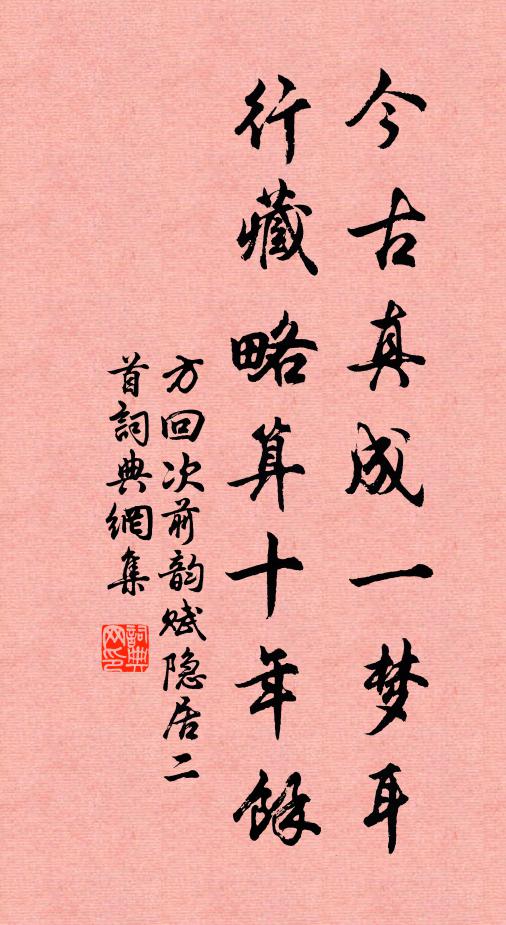 今古真成一梦耳
行藏略算十年餘
方回次前韵赋隐居二
首詞典網集
詞典网印